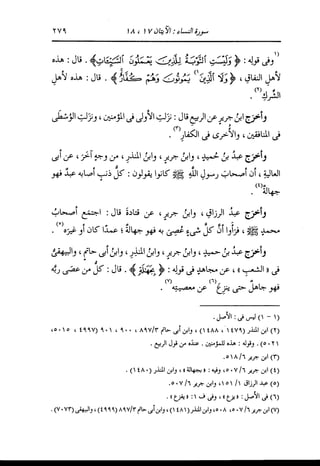 سورة النساء : الآيتان ١٧ ، ١٨ ٢٧٩
(١) وفي قوله : ﴿ وَلَيْسَتِ التَّوْبَةُ لِلَّذِينَ يَعْمَلُونَ السَّيِّئَاتِ ﴾ . قال : هذه
لأهلِ النفاقِ ، ﴿ وَلَا الَّذِينَ (١) يَمُوتُونَ وَهُمْ كُفَّارٌ ﴾ . قال : هذه لأهلِ
الشركِ (٢) .
وأخرَج ابنُ جريرٍ عن الربيعِ قال : نزلت الأولى في المؤمنين ، ونزلت الوُسْطَى
في المنافقين ، والأُخرى في الكفارِ (٣) .
وأخرَج عبدُ بنُ حُميدٍ ، وابنُ جريرٍ ، وابنُ المنذرِ ، من وجهٍ آخرَ ، عن أبي
العاليةِ ، أن أصحابَ رسولِ اللهِ ﷺ كانوا يقولون : كلُّ ذنبٍ أصابه عبدٌ فهو
جهالةٌ (٤) .
وأخرَج عبدُ الرزاقِ ، وابنُ جريرٍ ، عن قتادةَ قال : اجتمع أصحابُ
محمدٍ ﷺ ، فرأَوا أن كلَّ شيءٍ عُصِي به فهو جهالةٌ ؛ عمدًا كان أو غيرَه (٥) .
وأخرَج عبدُ بنُ حميدٍ ، وابنُ جريرٍ ، وابنُ المنذرِ ، وابنُ أبي حاتمٍ ، والبيهقيُّ
في « الشعبِ » ، عن مجاهدٍ في قوله : ﴿ بِجَهَالَةٍ ﴾ . قال : كلُّ مَن عصَى ربَّه
فهو جاهلٌ حتى ينزِعَ (٦) عن معصيتِه (٧) .
(١ - ١) ليس في : الأصل .
(٢) ابن المنذر (١٤٧٩، ١٤٨٨) ، وابن أبي حاتم ٨٩٧/٣، ٩٠٠، ٩٠١ (٤٩٩٧، ٥٠١٥،
٥٠٢١) . وقوله : هذه للمؤمنين . عنده من قول الربيع .
(٣) ابن جرير ٥١٨/٦.
(٤) ابن جرير ٥٠٧/٦، وفيه : « بجهالة » ، وابن المنذر (١٤٨٠) .
(٥) عبد الرزاق ١٥١/١، وابن جرير ٥٠٧/٦.
(٦) في الأصل : « يرع » ، وفي ف ١: « يفزع » .
(٧) ابن جرير ٥٠٧/٦، ٥٠٨، وابن المنذر (١٤٨١) ، وابن أبي حاتم ٨٩٧/٣ (٤٩٩٩) ، والبيهقي (٧٠٧٣) .